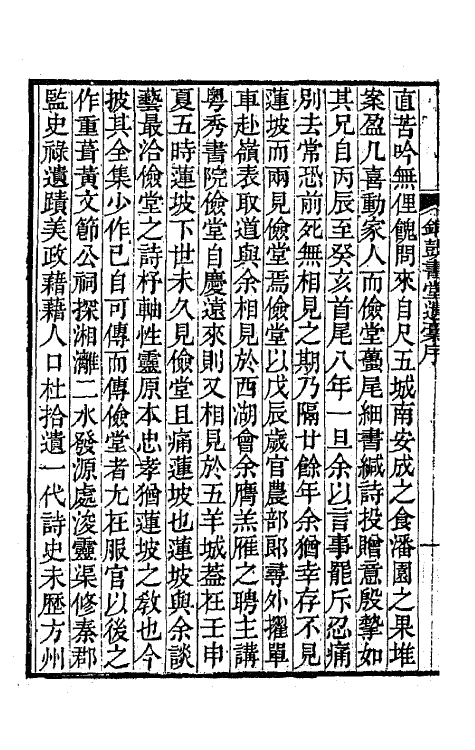 銅鼓書堂遺稾序
直苦吟無俚餽問來自尺五城南安成之食潘園之果堆
案盈几喜動家人而儉堂蠆尾細書緘詩投贈意殷摯如
其兄自丙辰至癸亥首尾八年一旦余以言事罷斥忍痛
別去常恐前死無相見之期乃隔廿餘年余猶幸存不見
蓮坡而兩見儉堂焉儉堂以戊辰歲官農部郎尋外擢單
車赴嶺表取道與余相見於西湖會余膺羔雁之聘主講
粵秀書院儉堂自慶遠來則又相見於五羊城葢在壬申
夏五時蓮坡下世未久見儉堂且痛蓮坡也蓮坡與余談
藝最洽儉堂之詩杼軸性靈原本忠孝猶蓮坡之教也今
披其全集少作已自可傳而傳儉堂者尤在服官以後之
作重葺黃文節公祠探湘灕二水發源處浚靈渠修秦郡
監史祿遺蹟美政藉藉人口杜拾遺一代詩史未歷方州
一